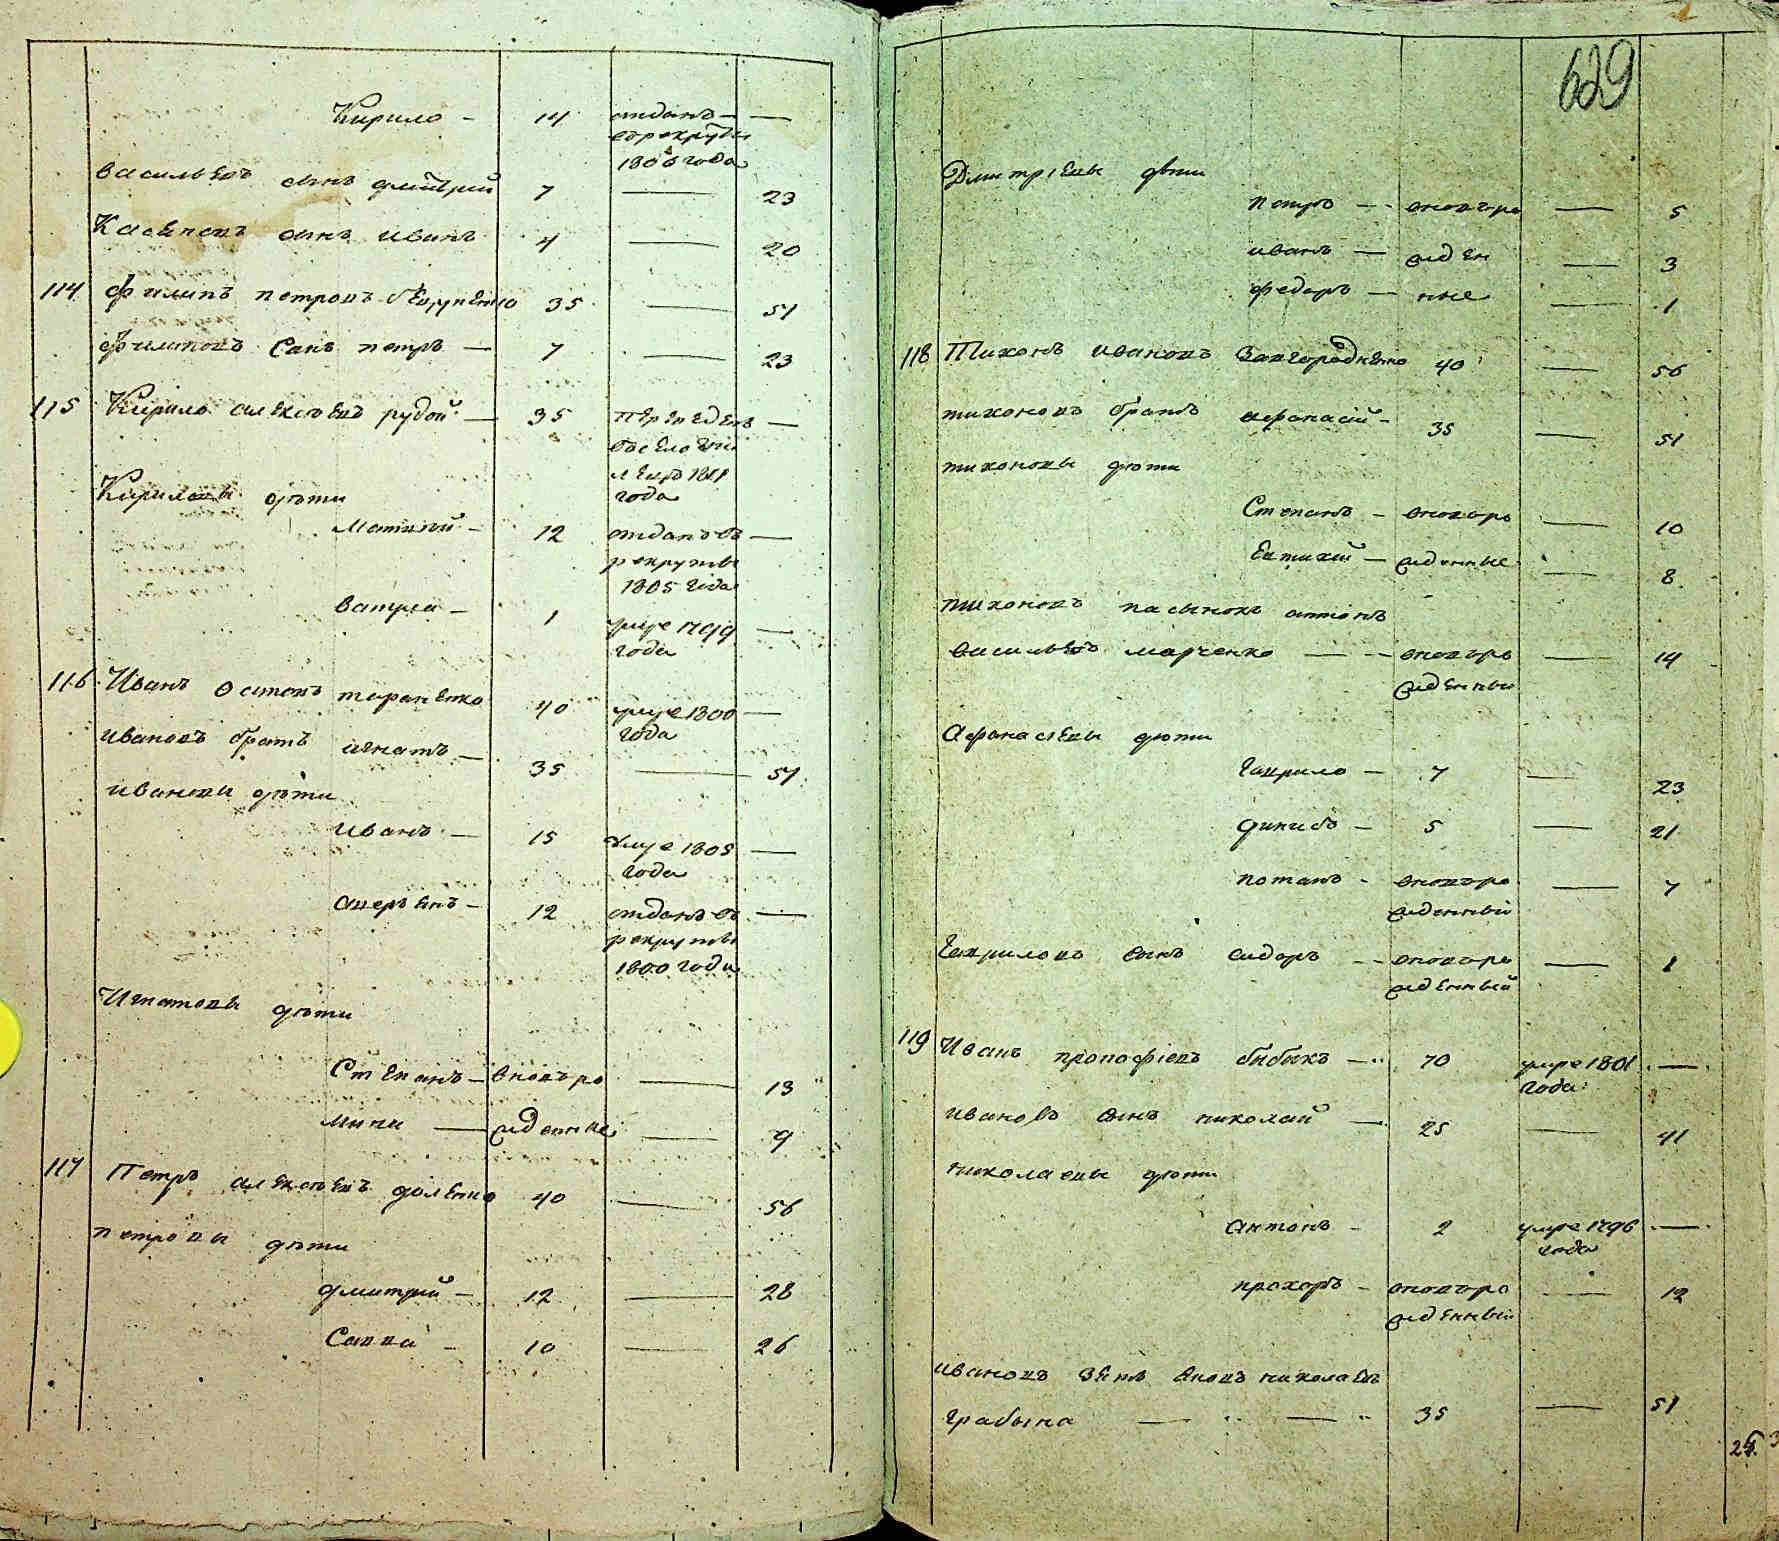 Кирило - 14 отданъ —
въ рекруты
1806 года
Васильевъ сынъ дмитрий 7 — 23
Касьяновъ сынъ иванъ 4 — 20
114 Филипъ петровъ 35 — 51
Филиповъ сынъ петръ — 7 — 23
115 Кирило алексѣевъ рудой — 35 переведенъ —
1811
года
Кириловы дѣти
Матвѣй - 12 отданъ въ —
рекруты
1805 года
Вавула - 1 умре 1799 —
года
116 Иванъ Остаповъ тараненко 40 умре 1800 —
года
ивановъ братъ игнатъ — 35 — 51
ивановы дѣти
иванъ — 15 умре 1805 —
года
аверьянъ - 12 отданъ въ —
рекруты
1800 года
Игнатовы дѣти
Степанъ — вновъро — 13
мина — жденные — 9
117 Петръ алексѣевъ доленко 40 — 56
петровы дѣти
дмитрий — 12 — 28
Савва - 10 — 26
629
Дмитріевы дѣти
петръ — вновъро — 5
иванъ — жден — 3
федоръ — ные — 1
118 Тихонъ ивановъ Завгороднено 40 — 56
тихоновъ братъ афанасій - 35 — 51
тихоновы дѣти
Степанъ - вновъро — 10
Евтихий — жденные — 8
тихоновъ пасынокъ антонъ
васильевъ марченко — вновъро — 14
жденный
Афанасіевы дѣти
Гаврило — 7 — 23
5 — 21
потапъ - вновъро — 7
жденный
Гавриловъ сынъ сидоръ — вновъро — 1
жденный
119 Иванъ прокофіевъ бибикъ — 70 умре 1801 —
года
ивановъ сынъ николай — 25 — 41
николаевы дѣти
антонъ - 2 умре 1796 —
года
прохоръ - вновъро — 12
жденный
ивановъ зять николаевъ
грабына — — 35 — 51